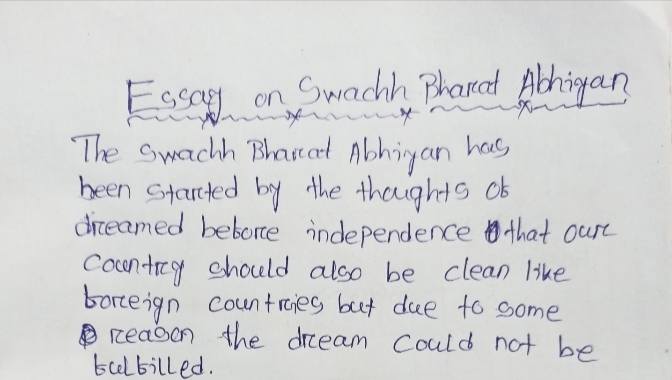 Essay on Swachh Bharat Abhiyan
The Swachh Bharat Abhiyan has
been started by the thoughts of
dreamed before independence that our
Country should also be clean like
foreign countries but due to some
reason the dream could not be
fulfilled.